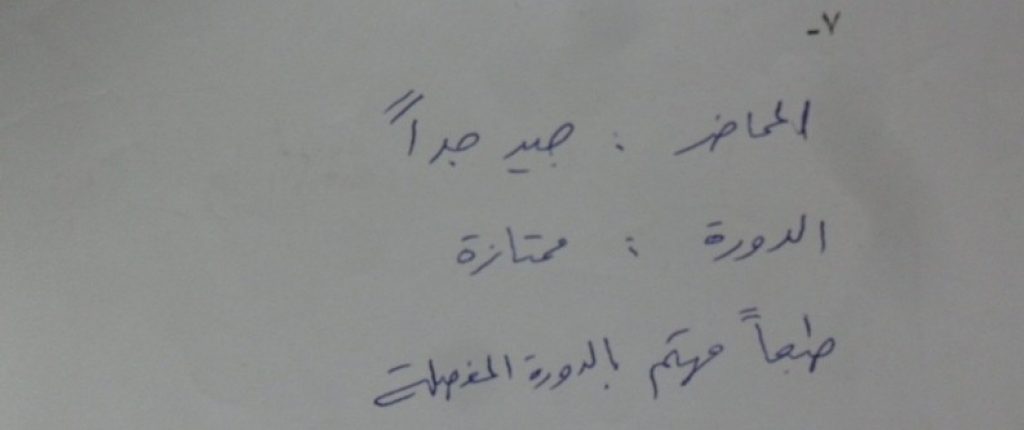 ٧-
المحاضر : جيد جداً
الدورة : ممتازة
طبعاً مهتم بالدورة المفصلة